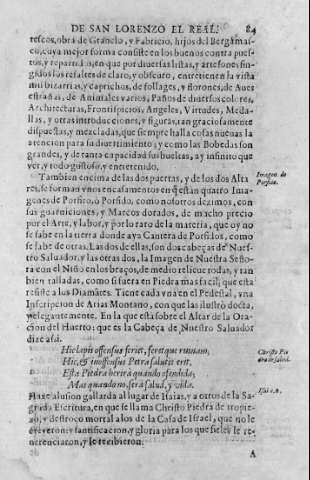 DE SAN LORENZO EL REAL. 84
tescos, obra de Granelo, y Fabricio, hijos del Bergamas-
co, cuya mejor forma consiste en los buenos contra pues-
tos, y repartirlos, en que por diversas listas, y artesones fin-
gidos los resaltes de claro, y obscuro, entretienen la vista
mil bizarrias, y caprichos, de follages, y florones, de Aues
estrañas, de Animales varios, Paños de diuersos colores,
Architecturas, Frontispicios, Angeles, Virtudes, Meda-
llas, y otras introducciones, y figuras, tan graciosamente
dispuestas, y mezcladas, que siempre halla cosas nueuas la
atencion para su diuertimiento; y como las Bobedas son
grandes, y de tanta capacidad sus huecas, ay infinito que
ver, y todo gustoso, y entretenido.
Tambien encima de las dos puertas, y de los dos Alta
res, se forman vnos encasamentos en que están quatro Ima-
genes de Porfiro, ò Porfido, como nosotros dezimos, con
sus guarniciones, y Marcos dorados, de mucho precio
por el Arte, y labor, y por lo raro de la materia, que oy no
se sabe en la tierra donde aya Cantera de Porfidos, como
se sabe de otras. Las dos de ellas, son dos cabeças de Nues-
tro Saluador, y las otras dos, la Imagen de Nuestra Seño-
ra con el Niño en los braços, de medio relieue todas, y tan
bien talladas, como si fuera en Piedra mas facil, que esta
resiste a los Diamãtes. Tiene cada vna en el Pedestal, vna
Inscripcion de Arias Montano, con que las ilustrò docta,
y elegantemente. En la que está sobre el Altar de la Ora-
cion del Huerto: que es la Cabeça de Nuestro Saluador
dize assi.
Imagen. de
Porfido.
Hic lapis offensus feriet, feretque ruinam,
Hic, & inoffensus Petra salutis erit.
Esta Piedra herirá quando ofendida;
Mas quando no, será salud, y vida.
Christo Pie
dra de salud.
Haze alusion gallarda al lugar de Isaias, y a otros de la Sa-
grada Escritura, en que se llama Christo Piedra de tropie-
zo, y destroço mortal a los de la Casa de Israel, que no le
creyeron: y santificacion, y gloria para los que fieles le re-
uerenciaron, y le recibieron.
A